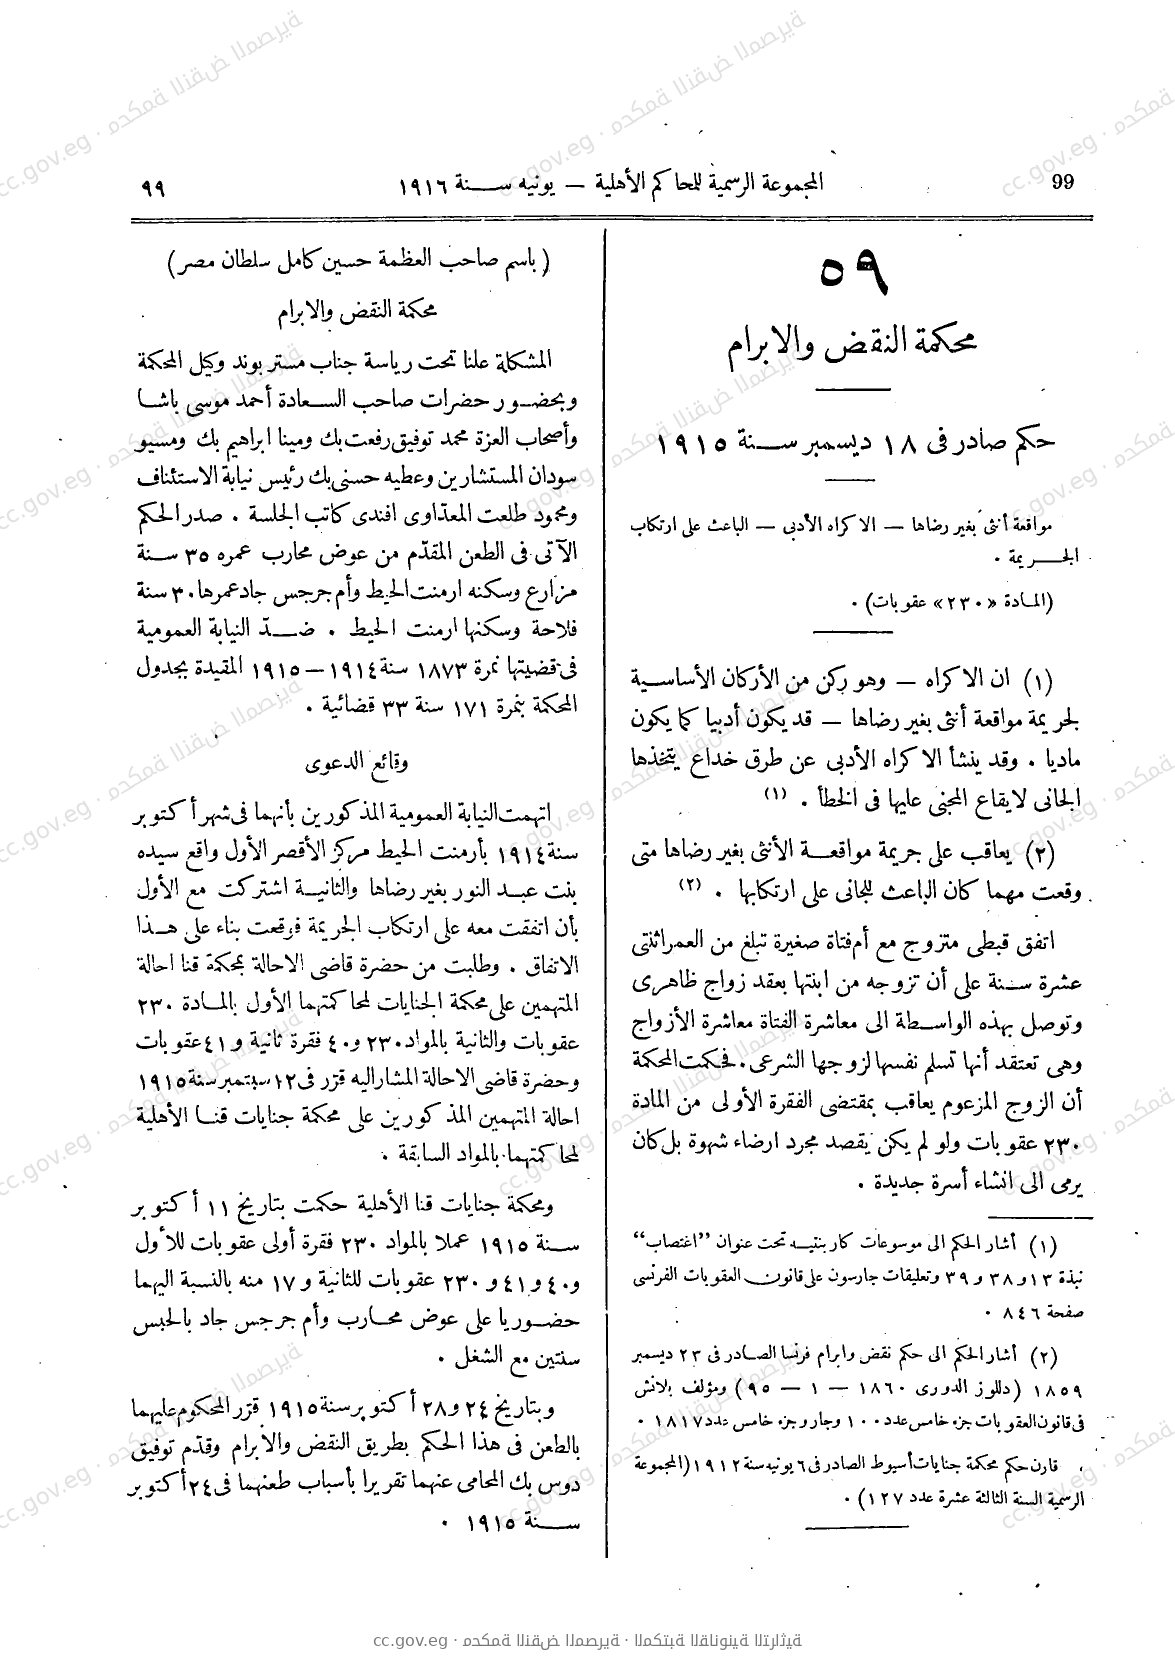 99
المجموعة الرسمية للمحاكم الأهلية — يونيه سنة ١٩١٦
٩٩
٥٩
محكمة النقض والابرام
حكم صادر فى ١٨ ديسمبر سنة ١٩١٥
مواقعة أنثى بغير رضاها — الاكراه الأدبى — الباعث على ارتكاب
الجريمة .
(المادة «٢٣٠» عقوبات) .
(١) ان الاكراه — وهو ركن من الأركان الأساسية
لجريمة مواقعة أنثى بغير رضاها — قد يكون أدبيا كما يكون
ماديا . وقد ينشأ الاكراه الأدبى عن طرق خداع يتخذها
الجانى لايقاع المجنى عليها فى الخطأ . (١)
(٢) يعاقب على جريمة مواقعة الأنثى بغير رضاها متى
وقعت مهما كان الباعث للجانى على ارتكابها . (٢)
اتفق قبطى متزوج مع أم فتاة صغيرة تبلغ من العمر اثنتى
عشرة سنة على أن تزوجه من ابنتها بعقد زواج ظاهرى
وتوصل بهذه الواسطة الى معاشرة الفتاة معاشرة الأزواج
وهى تعتقد أنها تسلم نفسها لزوجها الشرعى . فحكمت المحكمة
أن الزوج المزعوم يعاقب بمقتضى الفقرة الأولى من المادة
٢٣٠ عقوبات ولو لم يكن يقصد مجرد ارضاء شهوة بل كان
يرمى الى انشاء أسرة جديدة .
(١) أشار الحكم الى موسوعات كاربنتييه تحت عنوان "اغتصاب"
نبذة ١٣ و ٣٨ و ٣٩ وتعليقات جارسون على قانون العقوبات الفرنسى
صفحة ٨٤٦ .
(٢) أشار الحكم الى حكم نقض وابرام فرنسا الصادر فى ٢٣ ديسمبر
١٨٥٩ (دللوز الدورى ١٨٦٠ — ١ — ٩٥) ومؤلف بلانش
فى قانون العقوبات جزء خامس عدد ١٠٠ وجارو جزء خامس عدد ١٨١٧ .
قارن حكم محكمة جنايات أسيوط الصادر فى ٦ يونيه سنة ١٩١٢ (المجموعة
الرسمية السنة الثالثة عشرة عدد ١٢٧) .
(باسم صاحب العظمة حسين كامل سلطان مصر)
محكمة النقض والابرام
المشكلة علنا تحت رياسة جناب مستر بوند وكيل المحكمة
وبحضور حضرات صاحب السعادة أحمد موسى باشا
وأصحاب العزة محمد توفيق رفعت بك ومينا ابراهيم بك ومسيو
سودان المستشارين وعطيه حسنى بك رئيس نيابة الاستئناف
ومحمود طلعت المعذاوى افندى كاتب الجلسة . صدر الحكم
الآتى فى الطعن المقدّم من عوض محارب عمره ٣٥ سنة
مزارع وسكنه ارمنت الحيط وأم جرجس جاد عمرها ٣٠ سنة
فلاحة وسكنها ارمنت الحيط . ضدّ النيابة العمومية
فى قضيتها نمرة ١٨٧٣ سنة ١٩١٤ — ١٩١٥ المقيدة بجدول
المحكمة بنمرة ١٧١ سنة ٣٣ قضائية .
وقائع الدعوى
اتهمت النيابة العمومية المذكورين بأنهما فى شهر أكتوبر
سنة ١٩١٤ بأرمنت الحيط مركز الأقصر الأول واقع سيده
بنت عبد النور بغير رضاها والثانية اشتركت مع الأول
بأن اتفقت معه على ارتكاب الجريمة فوقعت بناء على هذا
الاتفاق . وطلبت من حضرة قاضى الاحالة بمحكمة قنا احالة
المتهمين على محكمة الجنايات لمحاكمتهما الأول بالمادة ٢٣٠
عقوبات والثانية بالمواد ٢٣٠ و ٤٠ فقرة ثانية و ٤١ عقوبات
وحضرة قاضى الاحالة المشار اليه قرّر فى ١٢ سبتمبر سنة ١٩١٥
احالة المتهمين المذكورين على محكمة جنايات قنا الأهلية
لمحاكمتهما بالمواد السابقة .
ومحكمة جنايات قنا الأهلية حكمت بتاريخ ١١ أكتوبر
سنة ١٩١٥ عملا بالمواد ٢٣٠ فقرة أولى عقوبات للأول
و ٤٠ و ٤١ و ٢٣٠ عقوبات للثانية و ١٧ منه بالنسبة اليهما
حضوريا على عوض محارب وأم جرجس جاد بالحبس
سنتين مع الشغل .
وبتاريخ ٢٤ و ٢٨ أكتوبر سنة ١٩١٥ قرّر المحكوم عليهما
بالطعن فى هذا الحكم بطريق النقض والابرام وقدّم توفيق
دوس بك المحامى عنهما تقريرا بأسباب طعنهما فى ٢٤ أكتوبر
سنة ١٩١٥ .
cc.gov.eg · محكمة النقض المصرية · المكتبة القانونية التراثية